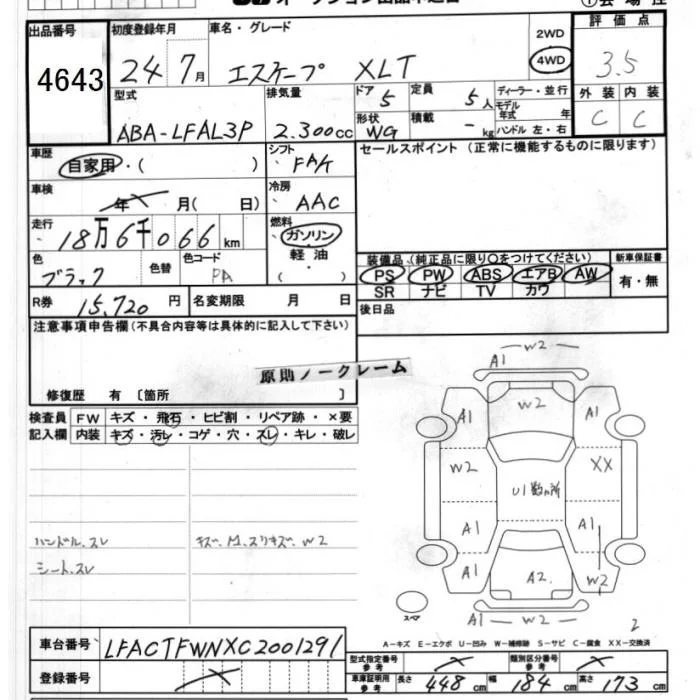 出品番号
4643
初度登録年月
24年7月
車名・グレード
エスケープ XLT
2WD
4WD
評価点
3.5
型式
ABA-LFAL3P
排気量
2.300cc
ドア
5
形状
WG
定員
5人
積載
- kg
ディーラー・並行
モデル年式 年
ハンドル 左・右
外装 内装
C C
車歴
自家用・( )
シフト
FAT
セールスポイント (正常に機能するものに限ります)
車検
年 月( 日)
冷房
AAC
走行
18万6千066km
燃料
ガソリン
軽油
・
色
ブラック
色替
色コード
PA
装備品(純正品に限り〇をつけてください)
PS PW ABS エアB AW
SR ナビ TV カワ
新車保証書
有・無
R券 15,720円
名変期限 月 日
後日品
注意事項申告欄(不具合内容等は具体的に記入して下さい)
原則ノークレーム
修復歴 有 〔箇所 〕
検査員記入欄
FW キズ・飛石・ヒビ割・リペア跡・×要
内装 キズ・汚レ・コゲ・穴・スレ・キレ・破レ
ハンドル、スレ
シート、スレ
キズ、M、スリキズ、W2
W2
A1
W2
A1
A1
W2
XX
U1数ヵ所
A1
A1
A1
A2
W2
A1
W2
スペア
2
A-キズ E-エクボ U-凹み W-補修跡 S-サビ C-腐食 XX-交換済
車台番号
LFACTFWNXC2001291
登録番号
型式指定番号 参考
類別区分番号 参考
車庫証明用 参考
長さ 448cm 幅 184cm 高さ 173cm